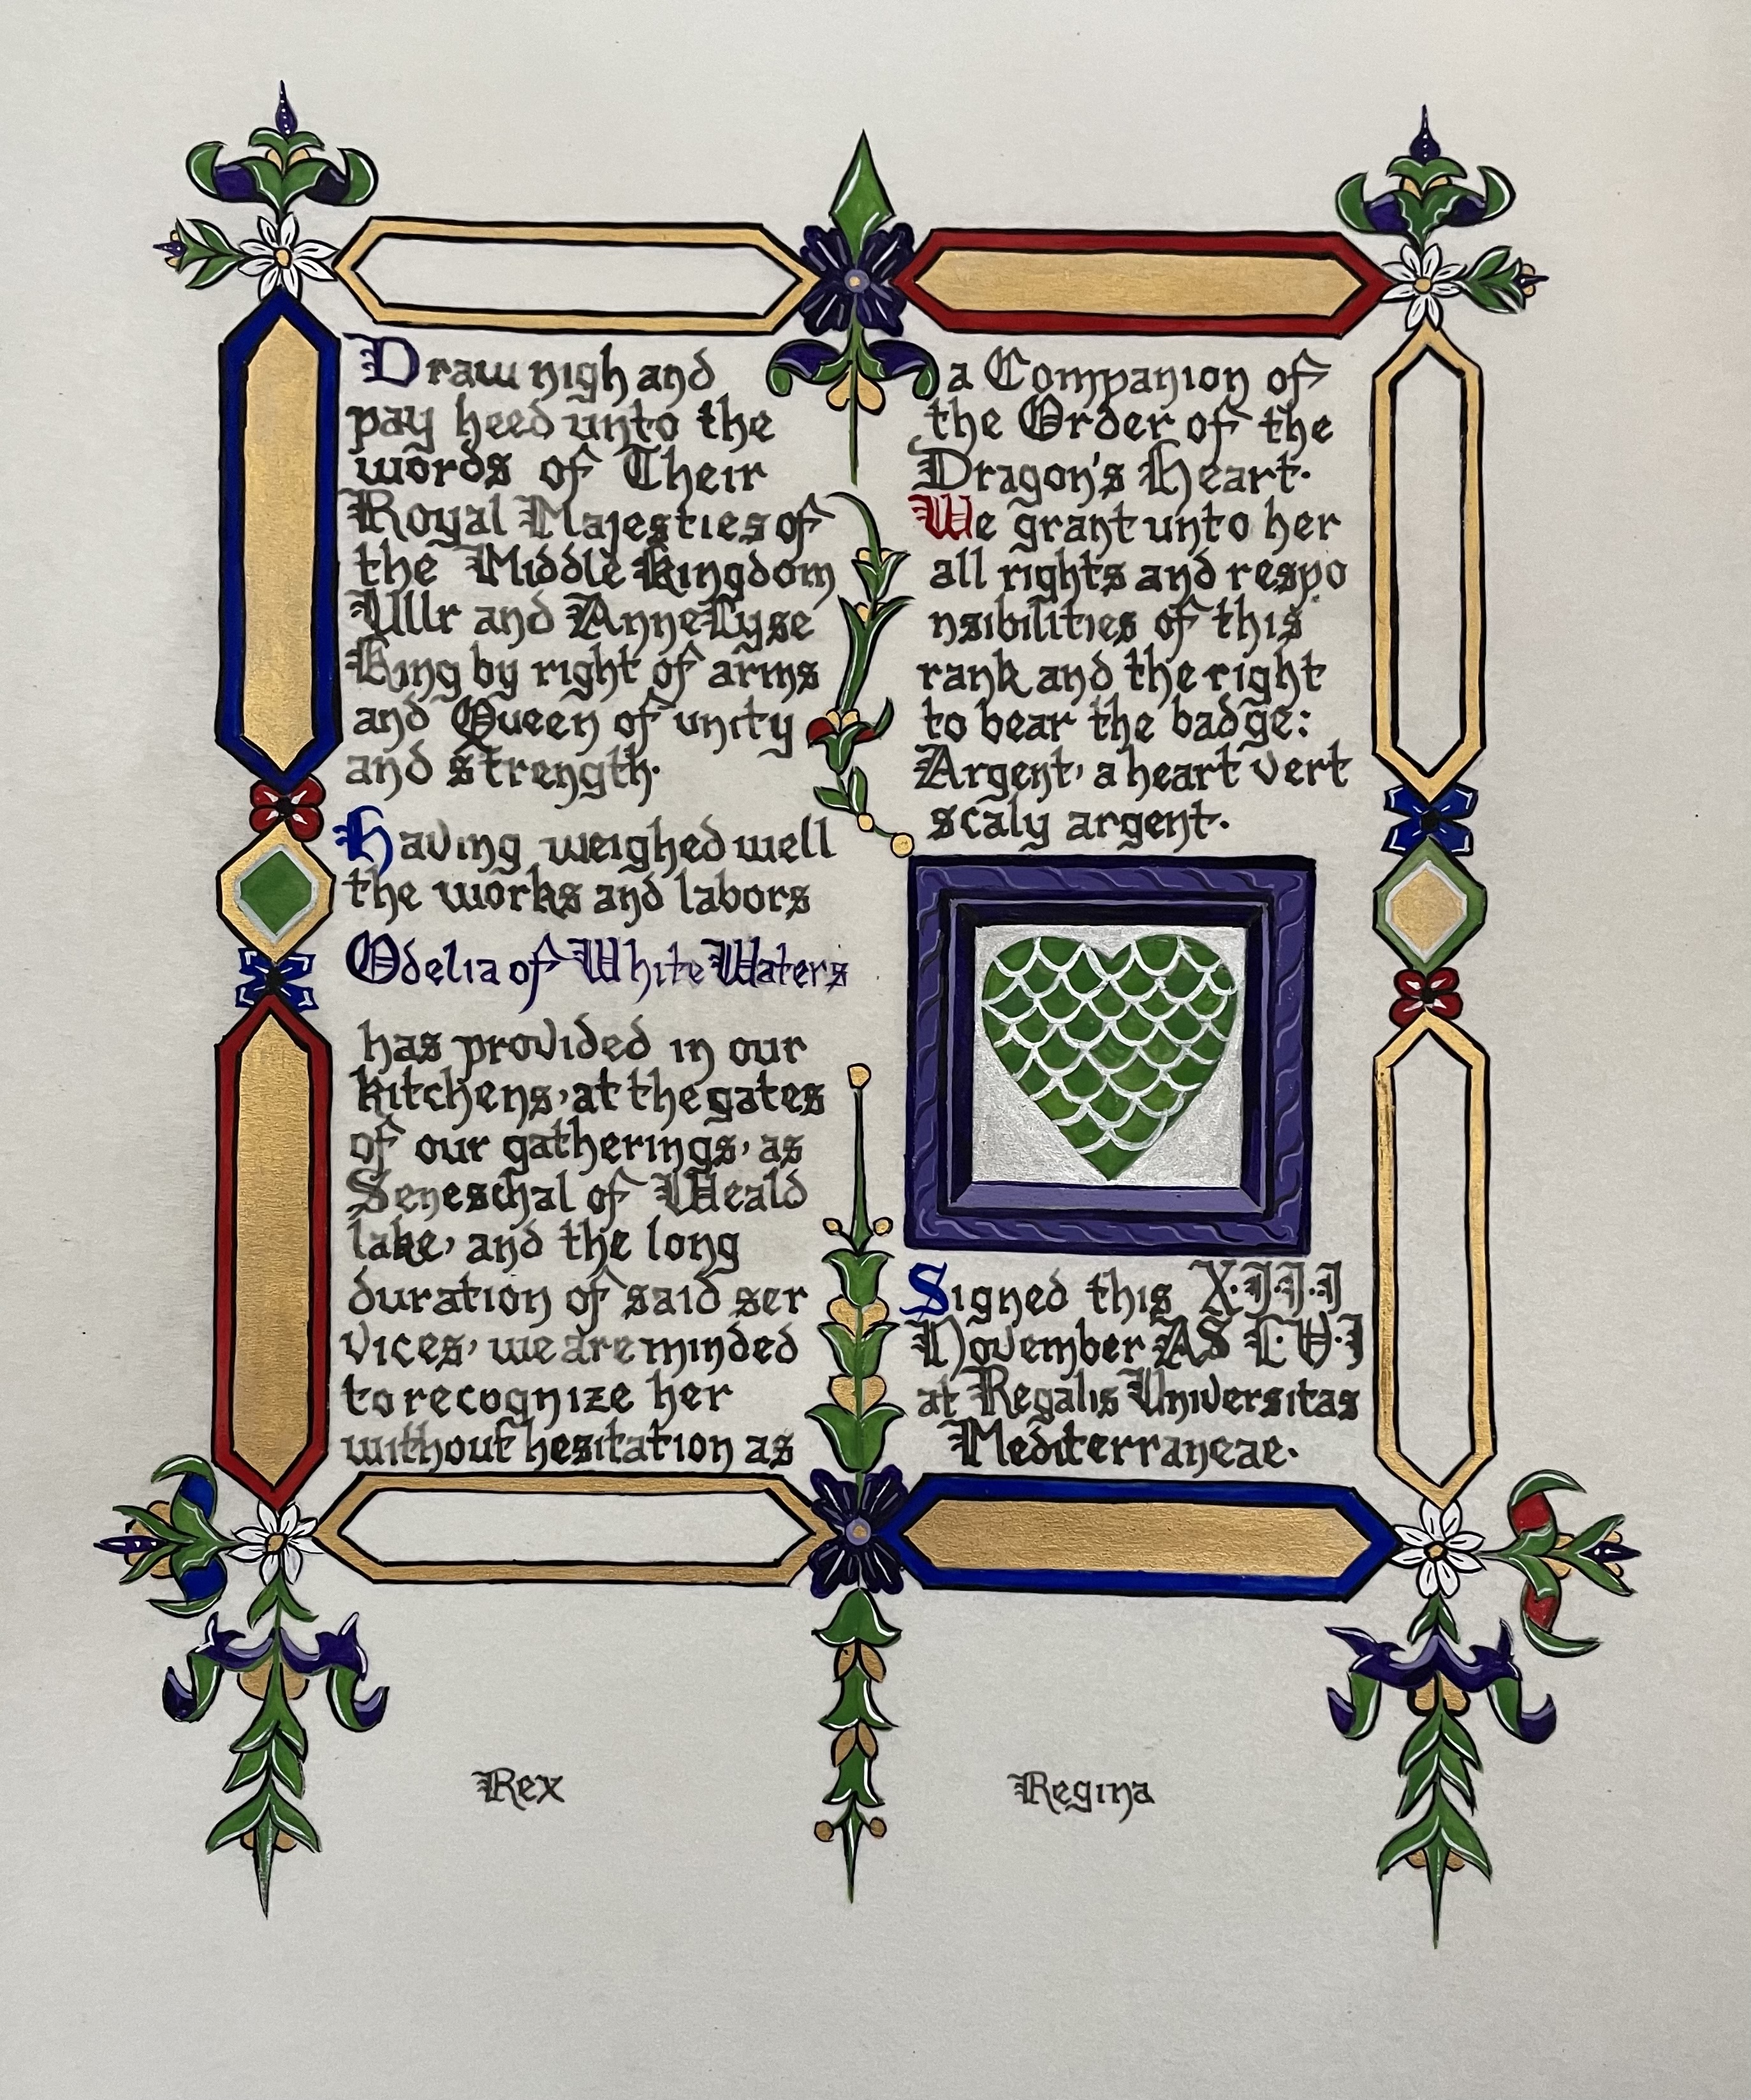 Draw nigh and
pay heed unto the
words of Their
Royal Majesties of
the Middle Kingdom
Ullr and AnneLyse
King by right of arms
and Queen of unity
and strength.
Having weighed well
the works and labors
Odelia of White Waters
has provided in our
kitchens, at the gates
of our gatherings, as
Seneschal of Weald
lake, and the long
duration of said ser
vices, we are minded
to recognize her
without hesitation as
a Companion of
the Order of the
Dragon's Heart.
We grant unto her
all rights and respo
nsibilities of this
rank and the right
to bear the badge:
Argent, a heart vert
scaly argent.
Signed this X.I.I.I
November AS L.V.I
at Regalis Universitas
Mediterraneae.
Rex
Regina